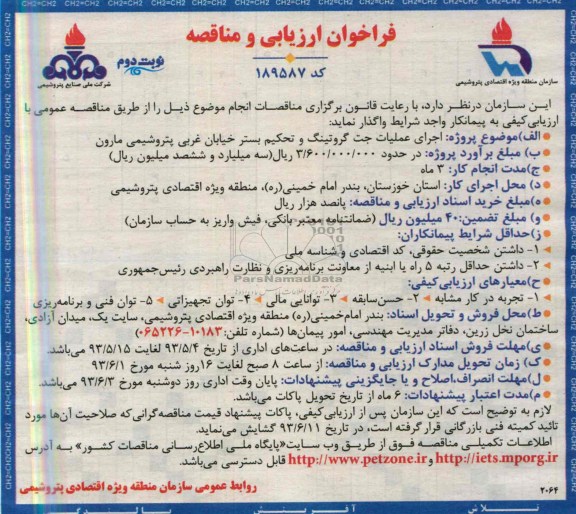 فراخوان ارزیابی و مناقصه
کد ۱۸۹۵۸۷
نوبت دوم
شرکت ملی صنایع پتروشیمی
سازمان منطقه ویژه اقتصادی پتروشیمی
این سازمان درنظر دارد، با رعایت قانون برگزاری مناقصات انجام موضوع ذیل را از طریق مناقصه عمومی با
ارزیابی‌کیفی به پیمانکار واجد شرایط واگذار نماید:
الف)موضوع پروژه: اجرای عملیات جت گروتینگ و تحکیم بستر خیابان غربی پتروشیمی مارون
ب) مبلغ برآورد پروژه: در حدود ۳/۶۰۰/۰۰۰/۰۰۰ ریال(سه میلیارد و ششصد میلیون ریال)
ج)مدت انجام کار: ۳ ماه
د) محل اجرای کار: استان خوزستان، بندر امام خمینی(ره)، منطقه ویژه اقتصادی پتروشیمی
ه)مبلغ خرید اسناد ارزیابی و مناقصه: پانصد هزار ریال
و) مبلغ تضمین:۴۰ میلیون ریال (ضمانتنامه معتبر بانکی، فیش واریز به حساب سازمان)
ز)حداقل شرایط پیمانکاران:
۱- داشتن شخصیت حقوقی، کد اقتصادی و شناسه ملی
۲- داشتن حداقل رتبه ۵ راه یا ابنیه از معاونت برنامه‌ریزی و نظارت راهبردی رئیس‌جمهوری
ح)معیارهای ارزیابی‌کیفی:
۱- تجربه در کار مشابه ۲- حسن‌سابقه ۳- توانایی مالی ۴- توان تجهیزاتی ۵- توان فنی و برنامه‌ریزی
ط)محل فروش و تحویل اسناد: بندر امام‌خمینی(ره) منطقه ویژه اقتصادی پتروشیمی، سایت یک، میدان آزادی،
ساختمان نخل زرین، دفاتر مدیریت مهندسی، امور پیمان‌ها (شماره تلفن:۱۰۱۸۳-۰۶۵۲۲۶)
ی)مهلت فروش اسناد ارزیابی و مناقصه: در ساعت‌های اداری از تاریخ ۹۳/۵/۴ لغایت ۹۳/۵/۱۵ می‌باشد.
ک) زمان تحویل مدارک ارزیابی و مناقصه: از ساعت ۸ صبح لغایت ۱۶روز شنبه مورخ ۹۳/۶/۱
ل)مهلت انصراف،اصلاح و یا جایگزینی پیشنهادات: پایان وقت اداری روز دوشنبه مورخ ۹۳/۶/۳ می‌باشد.
م)مدت اعتبار پیشنهادات: ۶ ماه از تاریخ تحویل پاکات می‌باشد.
لازم به توضیح است که این سازمان پس از ارزیابی‌کیفی، پاکات پیشنهاد قیمت مناقصه‌گرانی‌که صلاحیت آن‌ها مورد
تائید کمیته فنی بازرگانی قرار گرفته است، در تاریخ ۹۳/۶/۱۱ گشایش می‌نماید.
اطلاعات تکمیلی مناقصه فوق از طریق وب سایت«پایگاه ملی اطلاع‌رسانی مناقصات کشور» به آدرس
http://iets.mporg.ir و http://www.petzone.ir قابل دسترسی می‌باشد.
روابط عمومی سازمان منطقه ویژه اقتصادی پتروشیمی
۲۰۶۴
ParsNamadData
تلاش آفرینش بالندگی